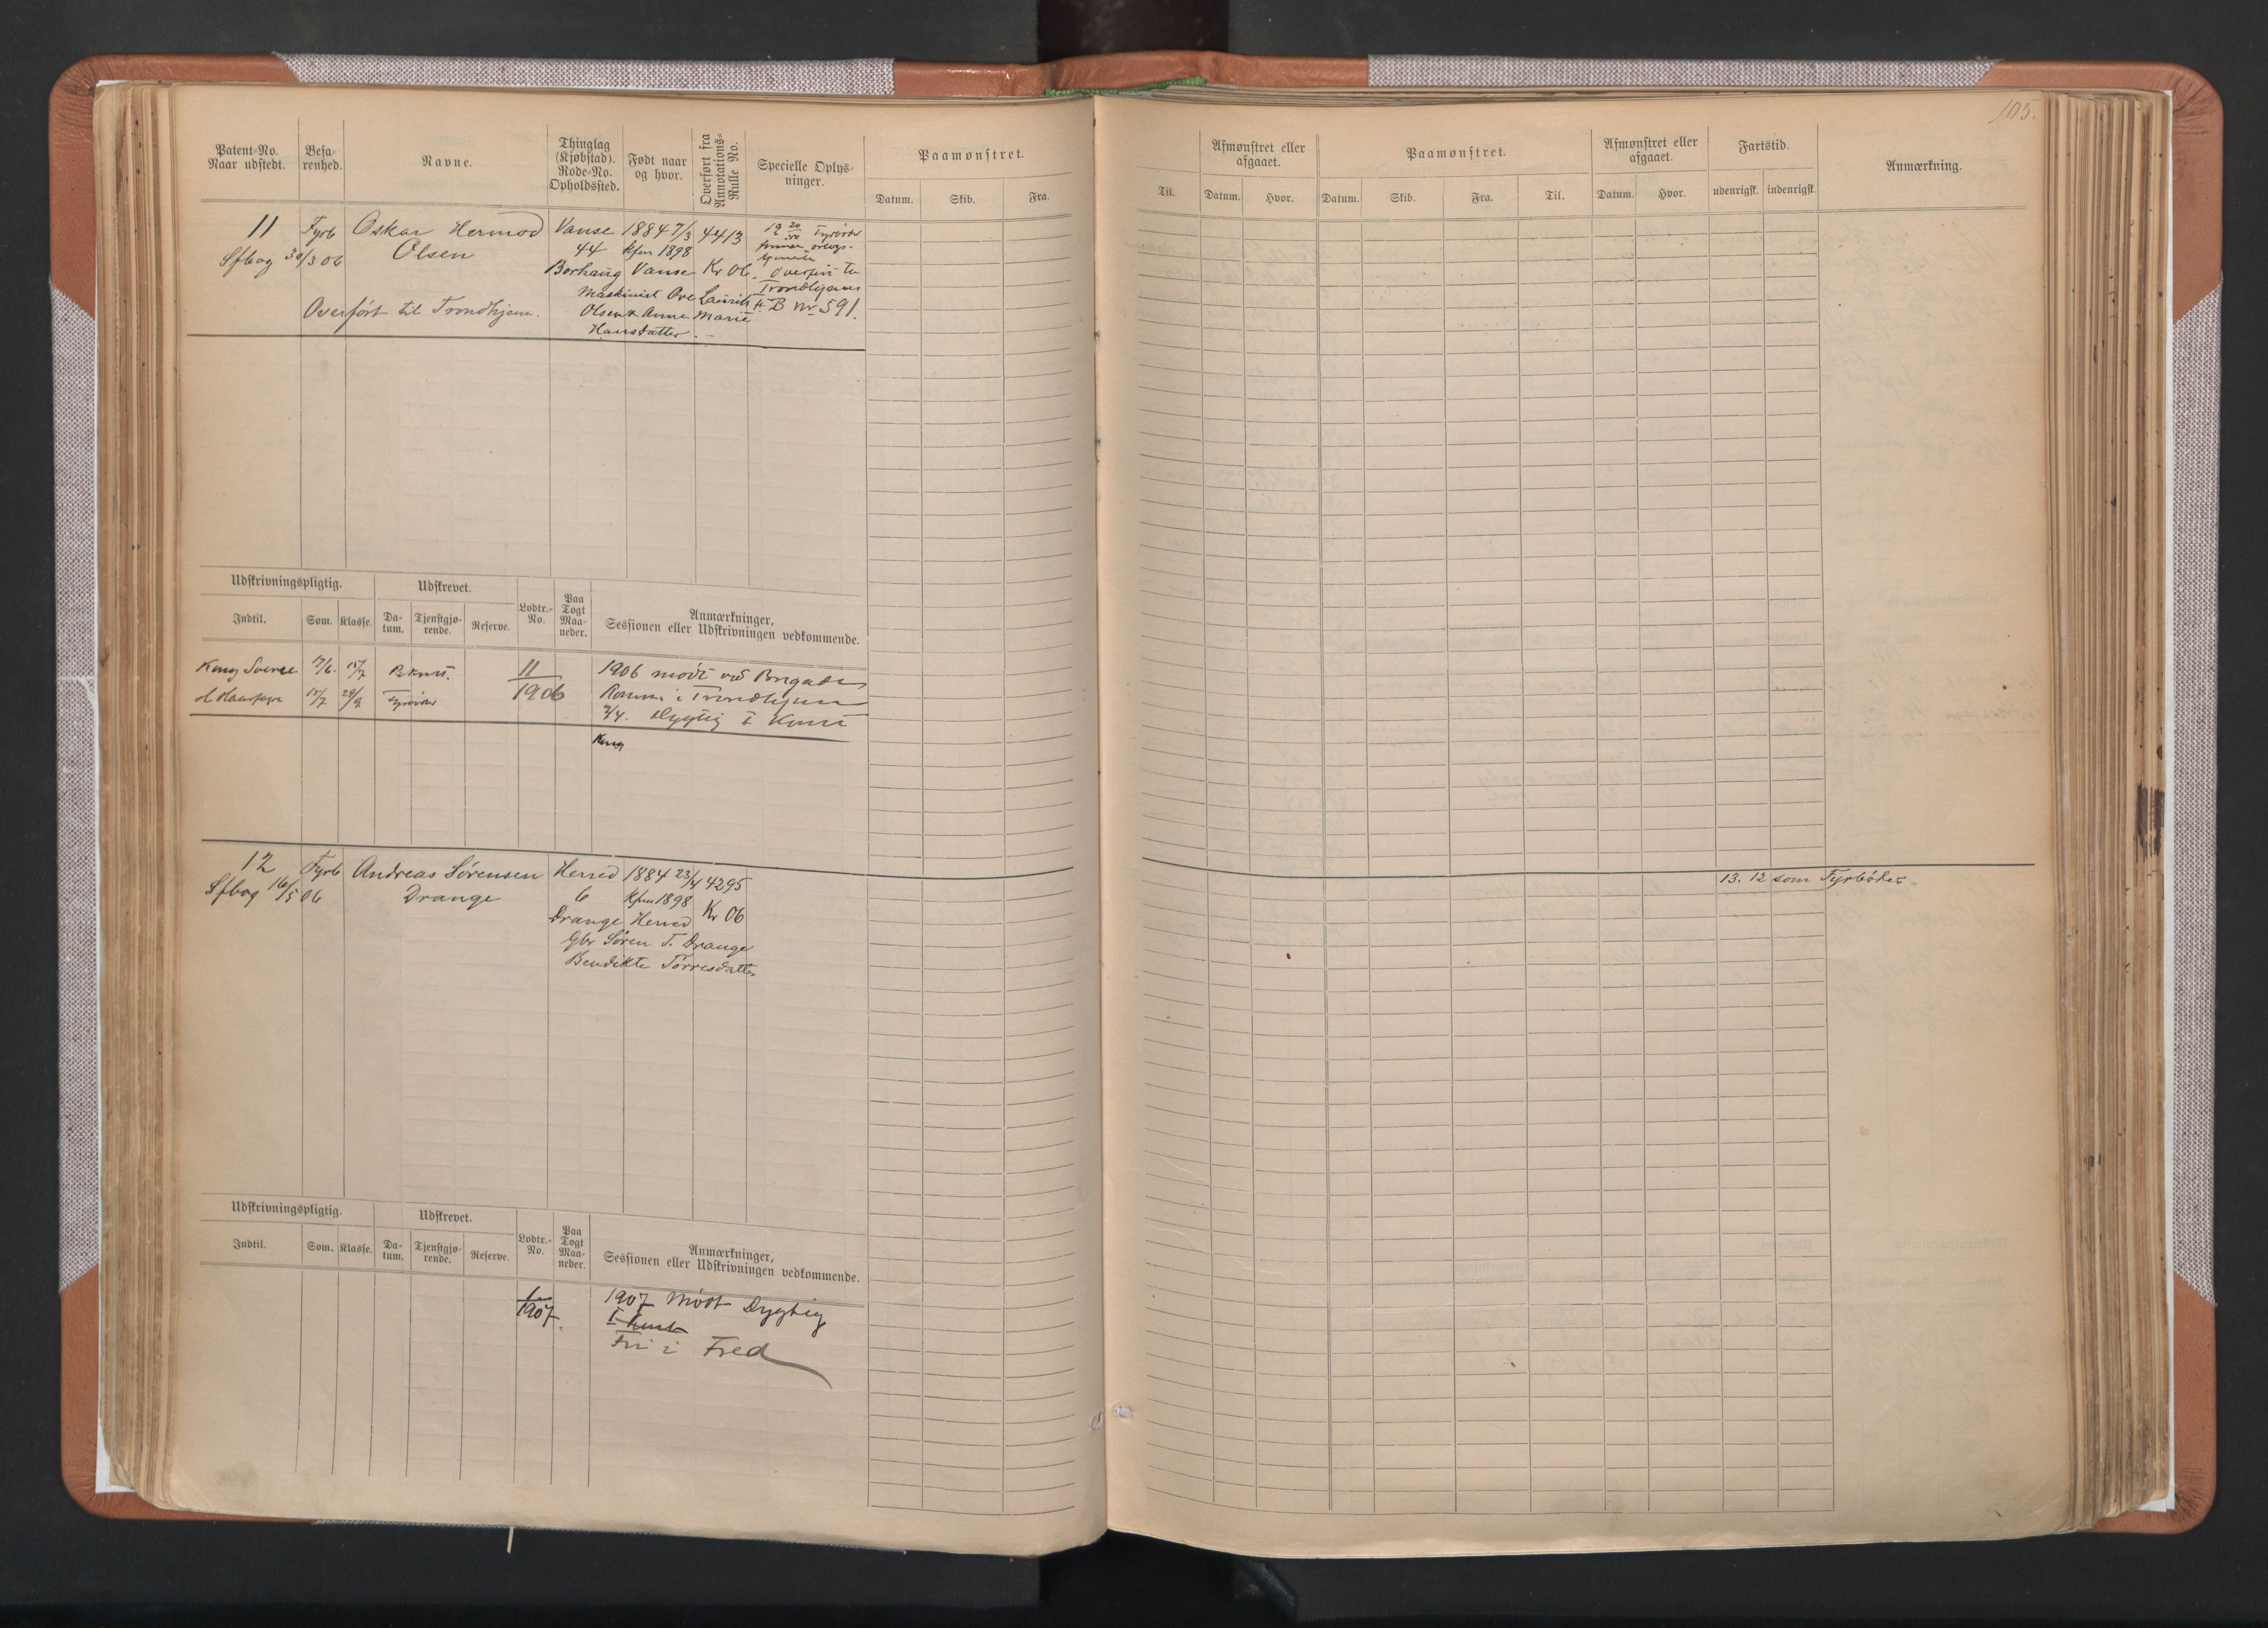 105.
Patent-No. Naar udstedt.
Besa-renhed.
Navne.
Thinglag (Kjøbstad). Rode-No. Opholdssted.
Født naar og hvor.
Overført fra Annotations-Rulle No.
Specielle Oplys-ninger.
Paamønstret.
Datum. Skib. Fra.
Til.
Afmønstret eller afgaaet.
Datum. Hvor.
Paamønstret.
Datum. Skib. Fra. Til.
Afmønstret eller afgaaet.
Datum. Hvor.
Fartstid.
udenrigsk. indenrigsk.
Anmærkning.
11 Fyrb Oskar Hermod Vanse 1884 7/3 4413
Sfbog 30/3 06 Olsen 44 Kfm 1898
Borhaug Vanse Kr 06
Maskinist Ove Laurits
Olsen & Anne Marie
Hansdatter.
Overført til Trondhjem.
Fyrbøder
Trondhjems
B nr 591.
Udskrivningspligtig.
Indtil. Som. Klasse.
Udskrevet.
Da-tum. Tjenstgjø-rende. Reserve.
Lodtr.-No.
Paa Togt Maa-neder.
Anmærkninger, Sessionen eller Udskrivningen vedkommende.
Kong Sverre 15/7 11/1906 1906 mødt ved Brigade
H Haarfagre 15/7 Fyrbøder Trondhjem
Dygtig I Kunst
Kong
12 Fyrb Andreas Sørensen Herred 1884 23/4 4295
Sfbog 16/5 06 Drange 6 Kfm 1898
Drange Herred Kr 06
Gbr Søren T. Drange
Bendikte Torresdatter
13. 12 som Fyrbøder
Udskrivningspligtig.
Indtil. Som. Klasse.
Udskrevet.
Da-tum. Tjenstgjø-rende. Reserve.
Lodtr.-No.
Paa Togt Maa-neder.
Anmærkninger, Sessionen eller Udskrivningen vedkommende.
1907. 1907 Mødt Dygtig
I Kunst
Fri i Fred